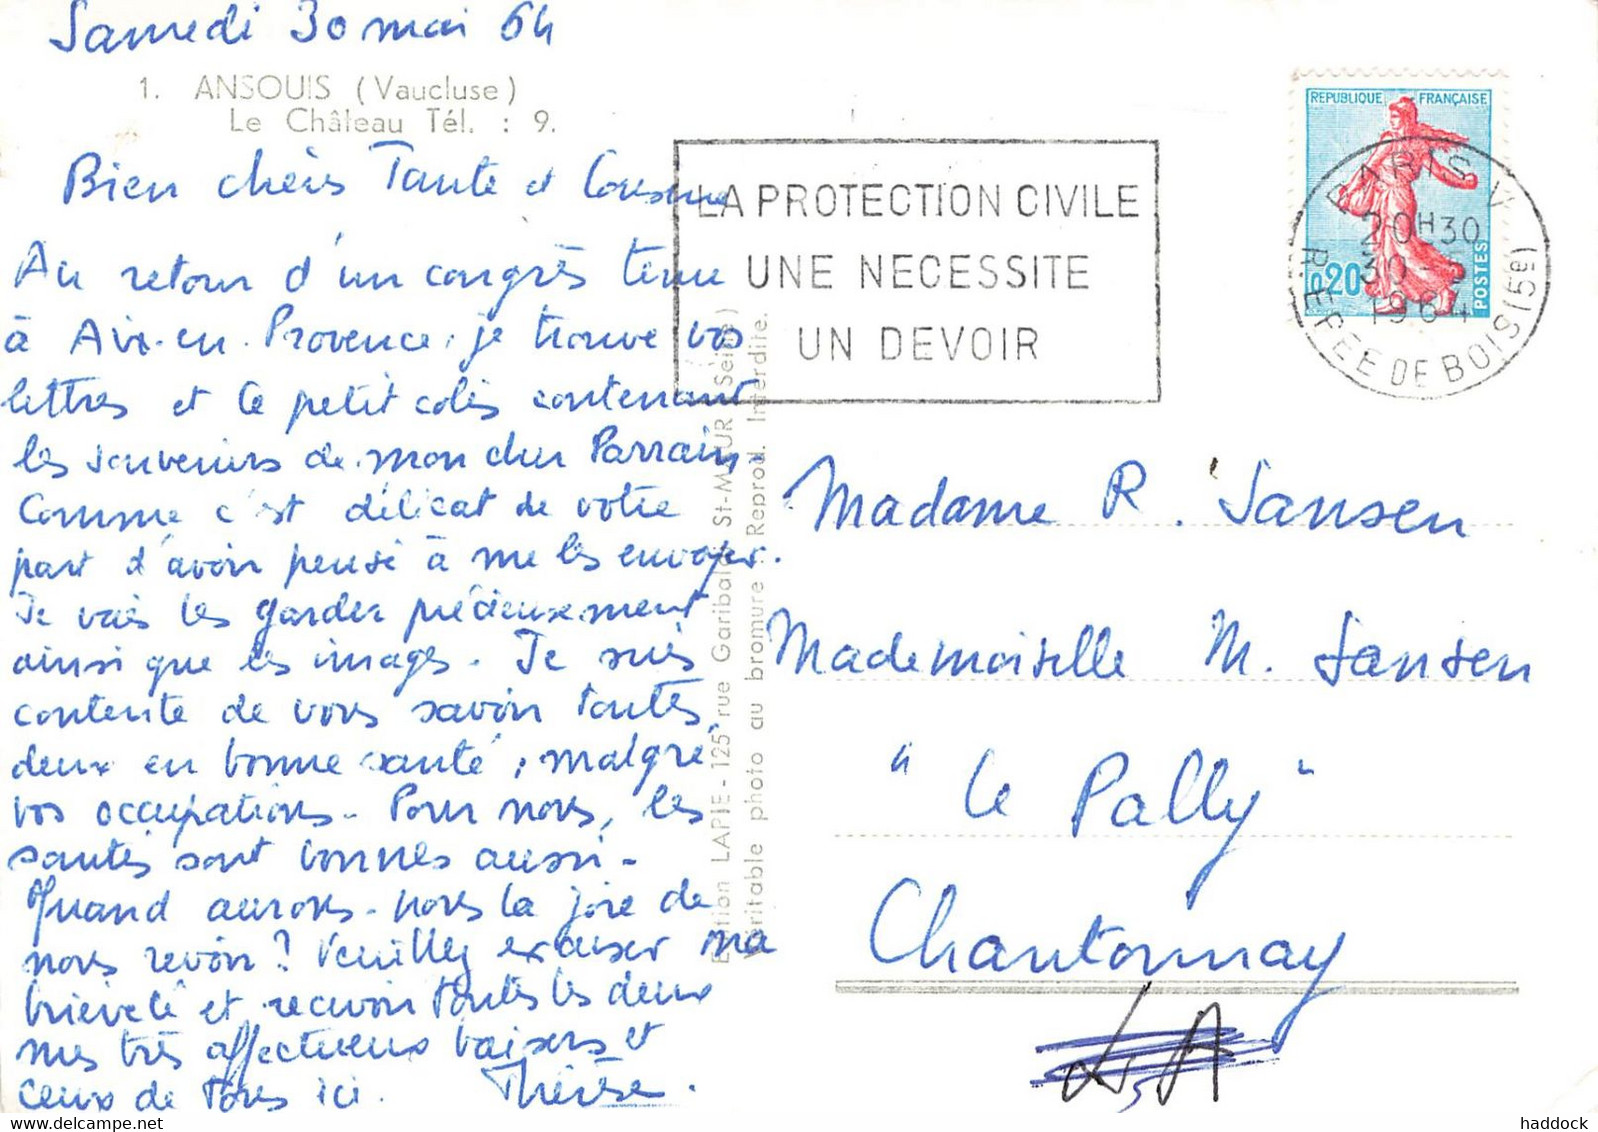 Samedi 30 mai 64
1. ANSOUIS (Vaucluse)
Le Château Tél. : 9.
Bien chères Tante et Cousine
Au retour d'un congrès tenu
à Aix-en-Provence, je trouve vos
lettres et le petit colis contenant
les souvenirs de mon cher Parrain.
Comme c'est délicat de votre
part d'avoir pensé à me les envoyer.
Je vais les garder précieusement
ainsi que les images. Je suis
contente de vous savoir toutes
deux en bonne santé, malgré
vos occupations. Pour nous, les
santés sont bonnes aussi.
Quand aurons-nous la joie de
nous revoir ? Veuillez excuser ma
brièveté et recevoir toutes les deux
mes très affectueux baisers et
ceux de tous ici. Thérèse.
Edition LAPIE - 125, rue Garibaldi St-MAUR (Seine)
Véritable photo au bromure - Reprod. Interdite.
LA PROTECTION CIVILE
UNE NECESSITE
UN DEVOIR
REPUBLIQUE FRANÇAISE
0,20
POSTES
PARIS V
20H30
30 5
1964
R. EPEE DE BOIS (5e)
Madame R. Jansen
Mademoiselle M. Jansen
"Le Pally"
Chantonnay
haddock